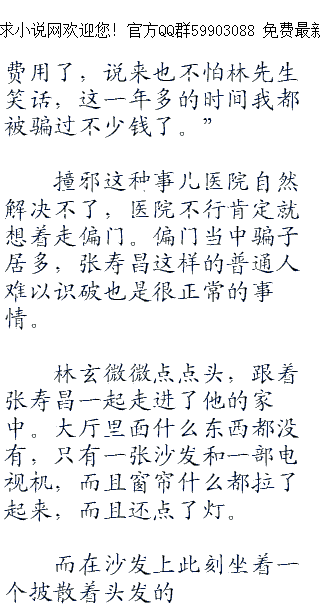 求小说网欢迎您！官方QQ群59903088 免费最新
费用了，说来也不怕林先生
笑话，这一年多的时间我都
被骗过不少钱了。”
撞邪这种事儿医院自然
解决不了，医院不行肯定就
想着走偏门。偏门当中骗子
居多，张寿昌这样的普通人
难以识破也是很正常的事
情。
林玄微微点点头，跟着
张寿昌一起走进了他的家
中。大厅里面什么东西都没
有，只有一张沙发和一部电
视机，而且窗帘什么都拉了
起来，而且还点了灯。
而在沙发上此刻坐着一
个披散着头发的